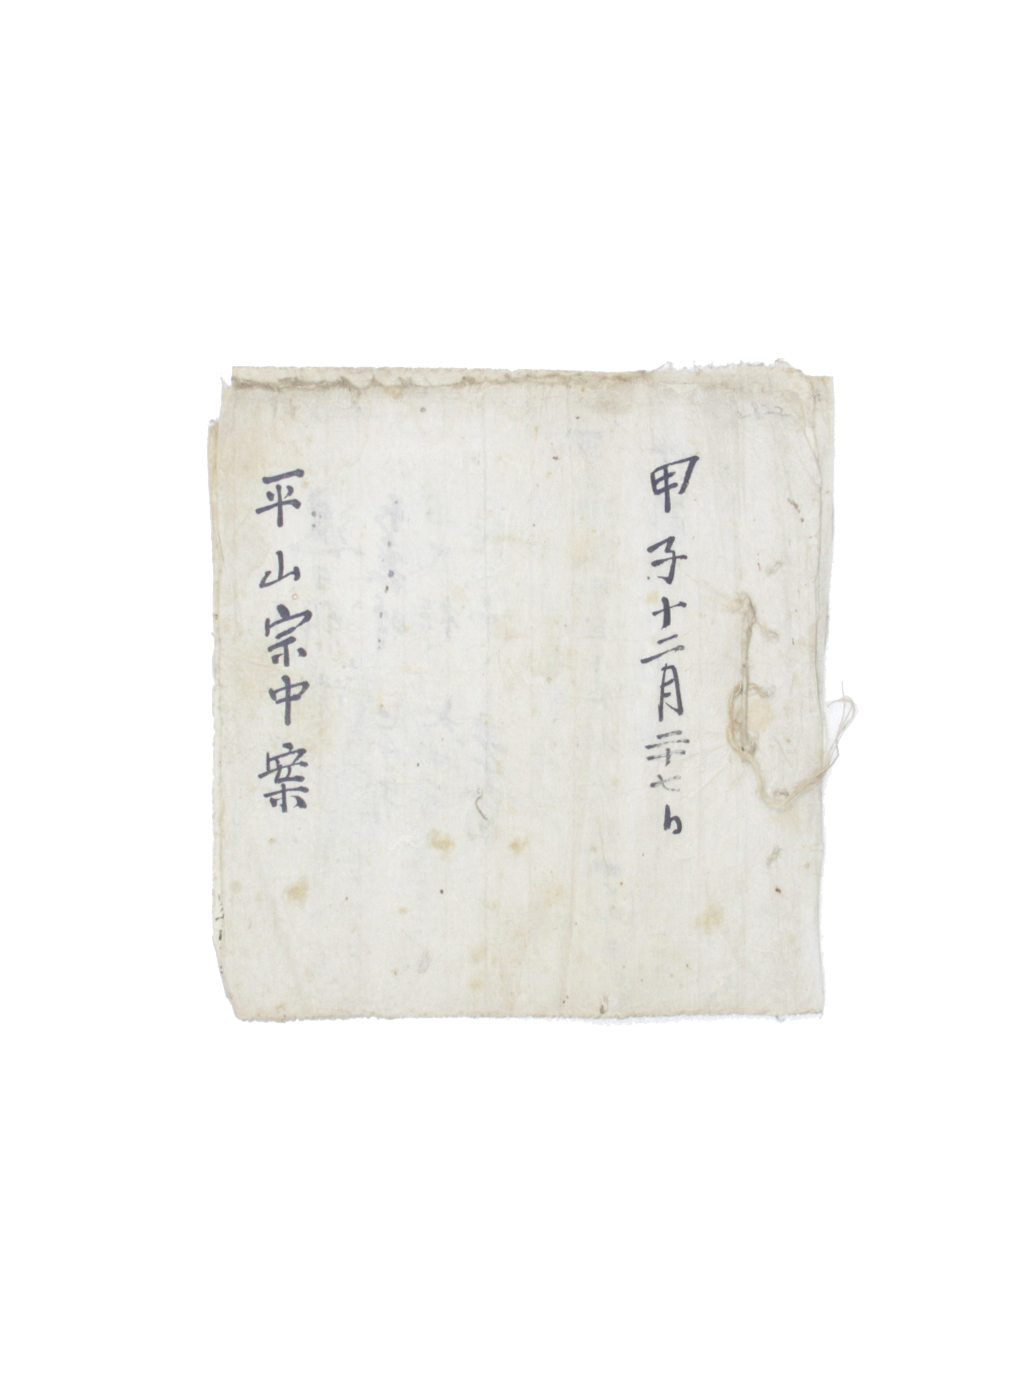 甲子十二月二十七日
平山宗中案